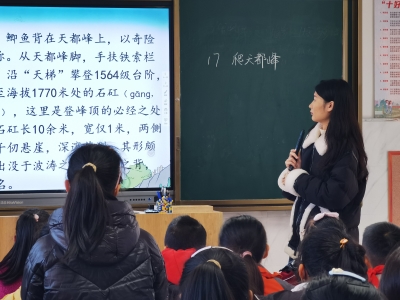 鲫鱼背在天都峰上，以奇险
称。从天都峰脚，手扶铁索栏
沿“天梯”攀登1564级台阶，
至海拔1770米处的石矼（gāng.
），这里是登峰顶的必经之处
石矼长10余米，宽仅1米，两侧
千仞悬崖，深
其形颇
出没于波涛之
之背，
名。
17 爬天都峰